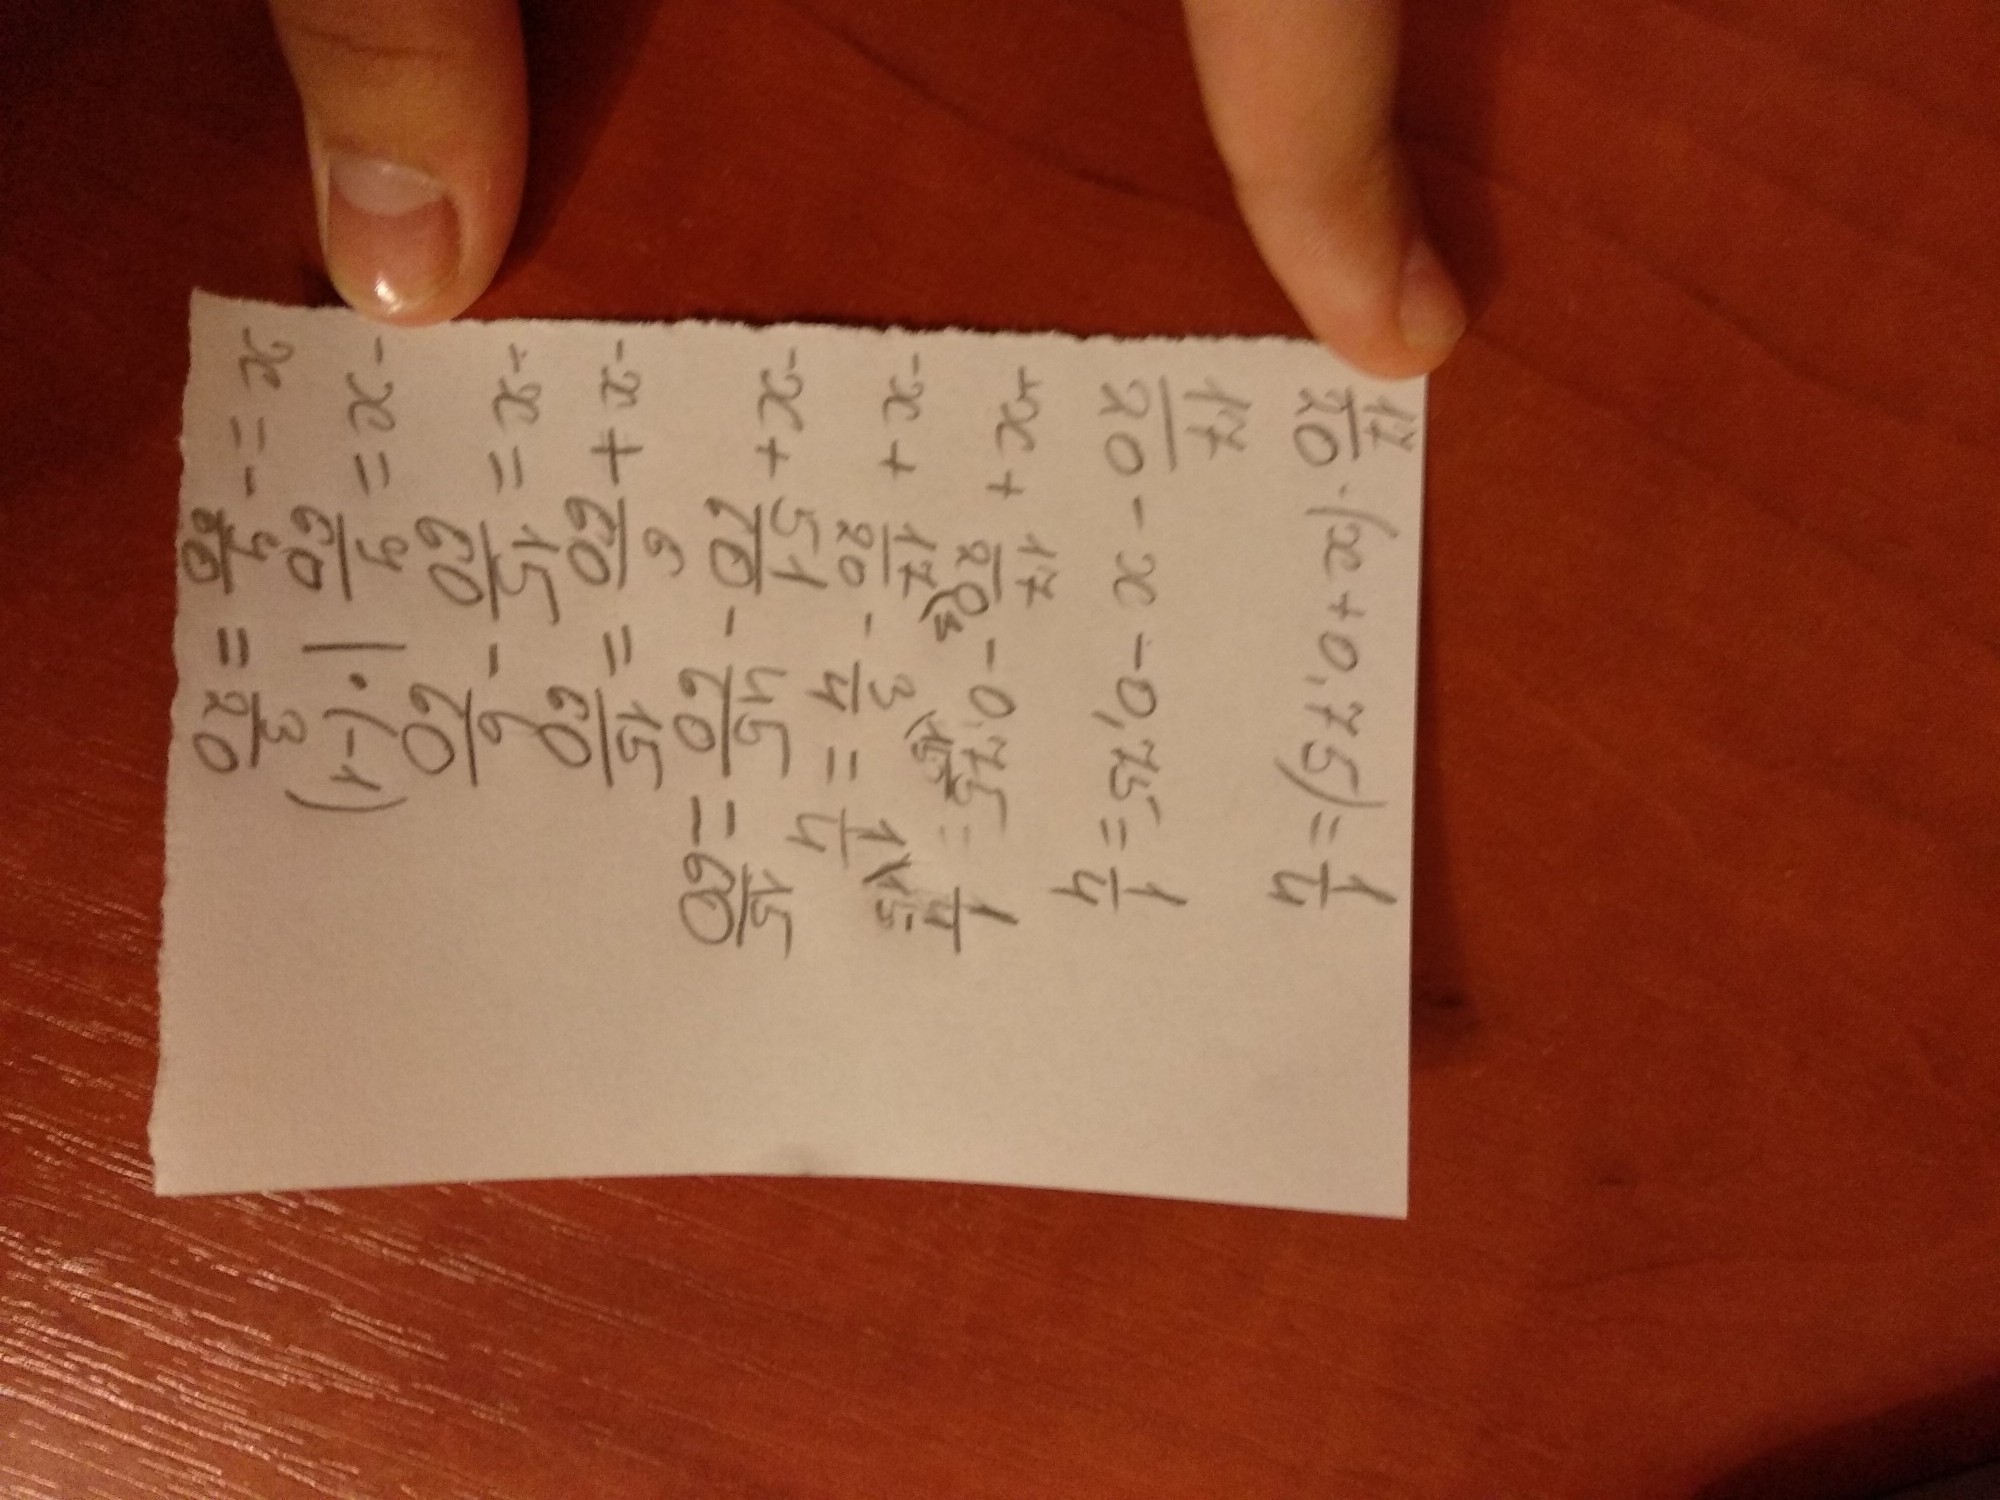 17/20 · (x + 0,75) = 1/4
17/20 - x - 0,75 = 1/4
-x + 17/20 - 0,75 = 1/4
-x + 17/20 \3 - 3/4 \15 = 1/4 \15
-x + 51/60 - 45/60 = 15/60
-x + 6/60 = 15/60
-x = 15/60 - 6/60
-x = 9/60 | · (-1)
x = - 9/60 = 3/20